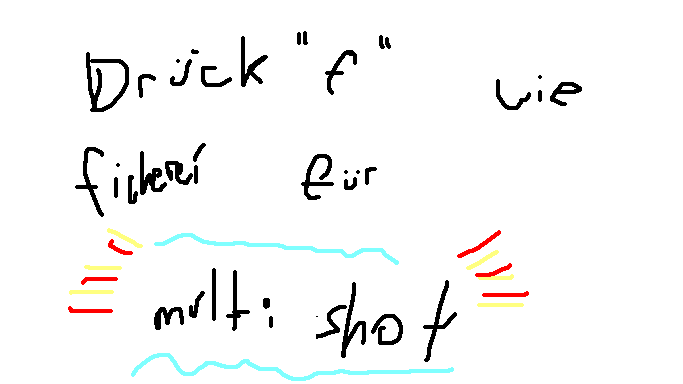 Drück "f" wie
ficherei für
multi shot